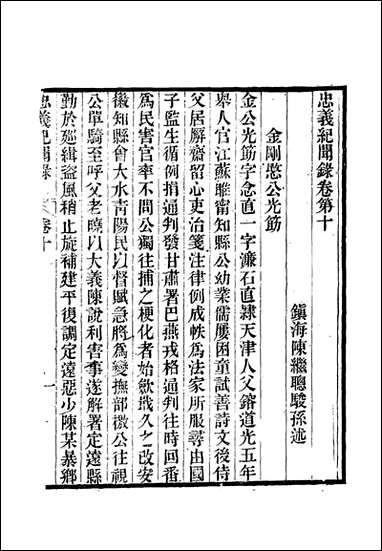 忠義紀聞錄卷第十
鎮海陳繼聰駿孫述
金剛愍公光筯
金公光筯字念直一字濂石直隸天津人父鎔道光五年
舉人官江蘇睢甯知縣公幼業儒屢困童試善詩文後侍
父居廨齋留心吏治箋注律例成帙為法家所服尋由國
子監生循例捐通判發甘肅署巴燕戎格通判往時回番
為民害官率不問公獨往捕之梗化者始歛戢久之改安
徽知縣會大水青陽民以督賦急將為變撫部微公往視
公單騎至呼父老曉以大義陳說利害事遂解署定遠縣
勤於廵緝盜風稍止旋補建平復調定遠惡少陳某暴鄉
忠義紀聞錄 卷十 一